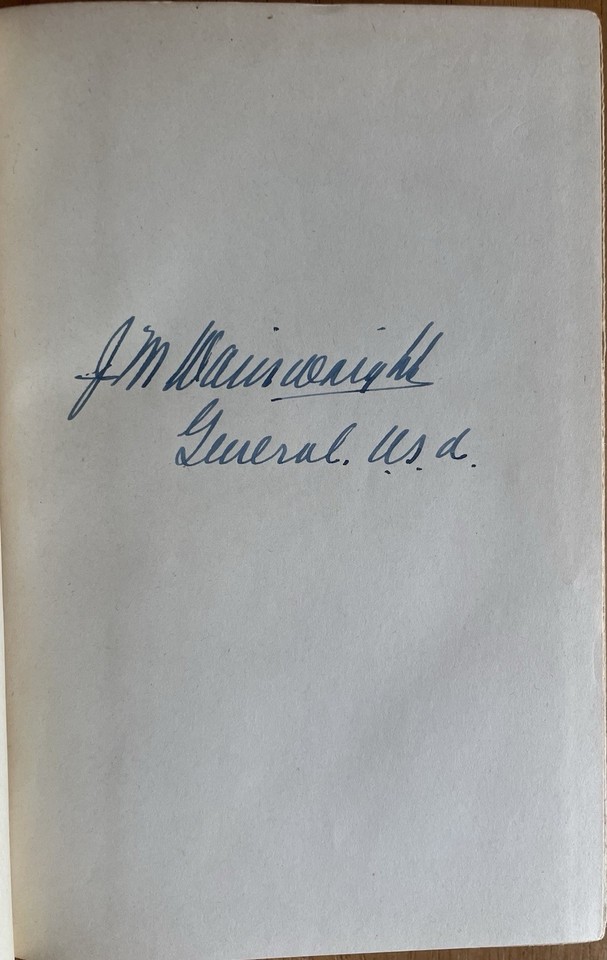 J M Wainwright
General. U.S.A.